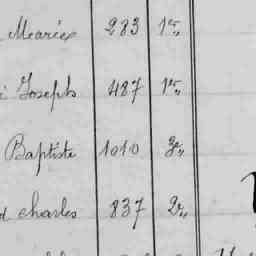 Maries 283 1re,,
Joseph 487 1re,,
Baptiste 1010 3e,,
charles 837 2e,,